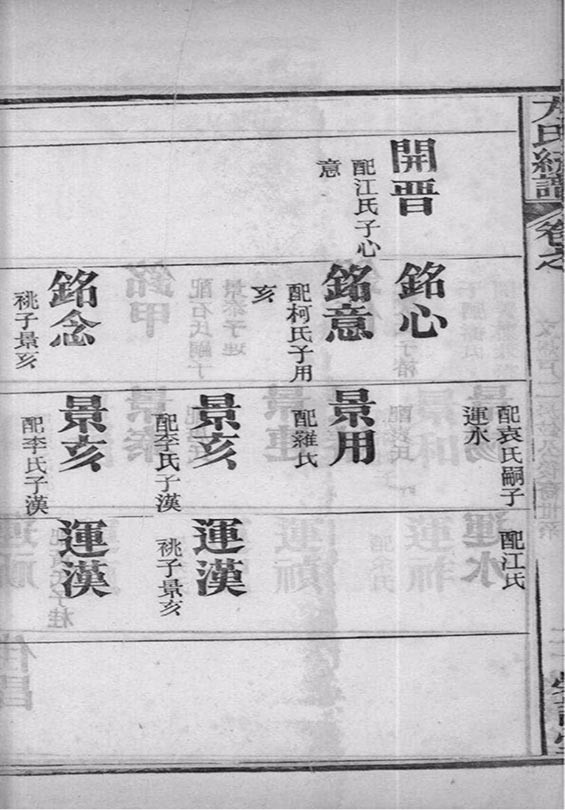 氏統譜
卷之
開晋
配江氏子心
意
銘心
銘意
配柯氏子用
亥
銘念
祧子景亥
配袁氏嗣子
運水
景用
配羅氏
景亥
配李氏子漢
景亥
配李氏子漢
配江氏
運漢
祧子景亥
運漢